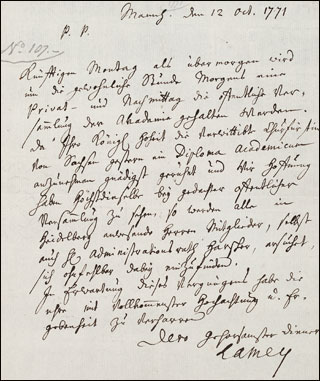 Mannh. den 12 Oct. 1771
P. P.
No 107.
Künfftigen Montag als übermorgen wird
um die gewohnliche Stunde Morgens eine
Privat- und Nachmittag die öffentliche Ver-
sammlung der Akademie gehalten werden.
da Ihro Königl. Hoheit die Verwittibte Churfürstin
von Sachsen gestern ein Diploma Academicum
anzunehmen gnädigst geruhet und Wir Hoffnung
haben Höchstdieselbe bey gedachter öffentlicher
Versammlung zu sehen, so werden alle in
Heidelberg anwesende Herren Mitglieder, selbst
auch H. Administrationsrath ersucht,
sich ohnfehlbar dabey einzufinden.
In Erwartung dieses Vergnügens habe die
Ehre mit Vollkommenster Hochachtung u. Er-
gebenheit zu verharren
Dero gehorsamster diener
Lamey